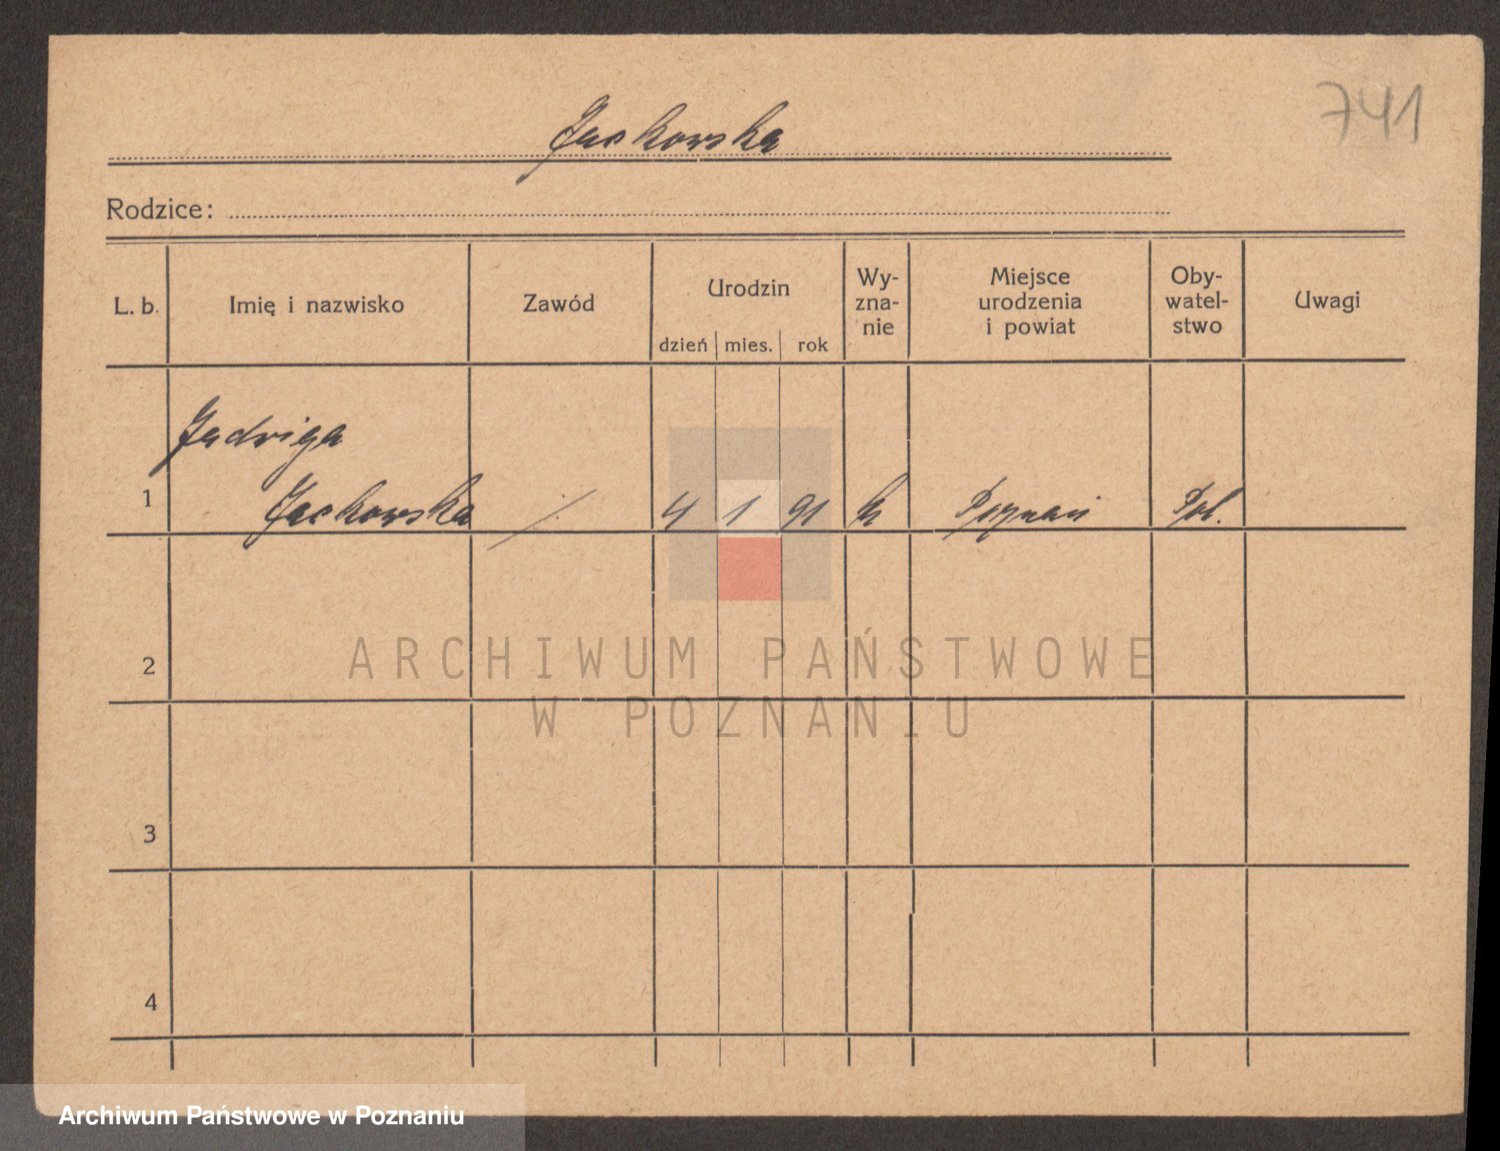 741
Jackowska
Rodzice:
L. b. Imię i nazwisko Zawód Urodzin dzień mies. rok Wy-zna-nie Miejsce urodzenia i powiat Oby-watel-stwo Uwagi
Jadwiga
1 Jackowska / 4 1 91 k Poznań Pol.
2
ARCHIWUM PAŃSTWOWE
W POZNANIU
3
4
Archiwum Państwowe w Poznaniu